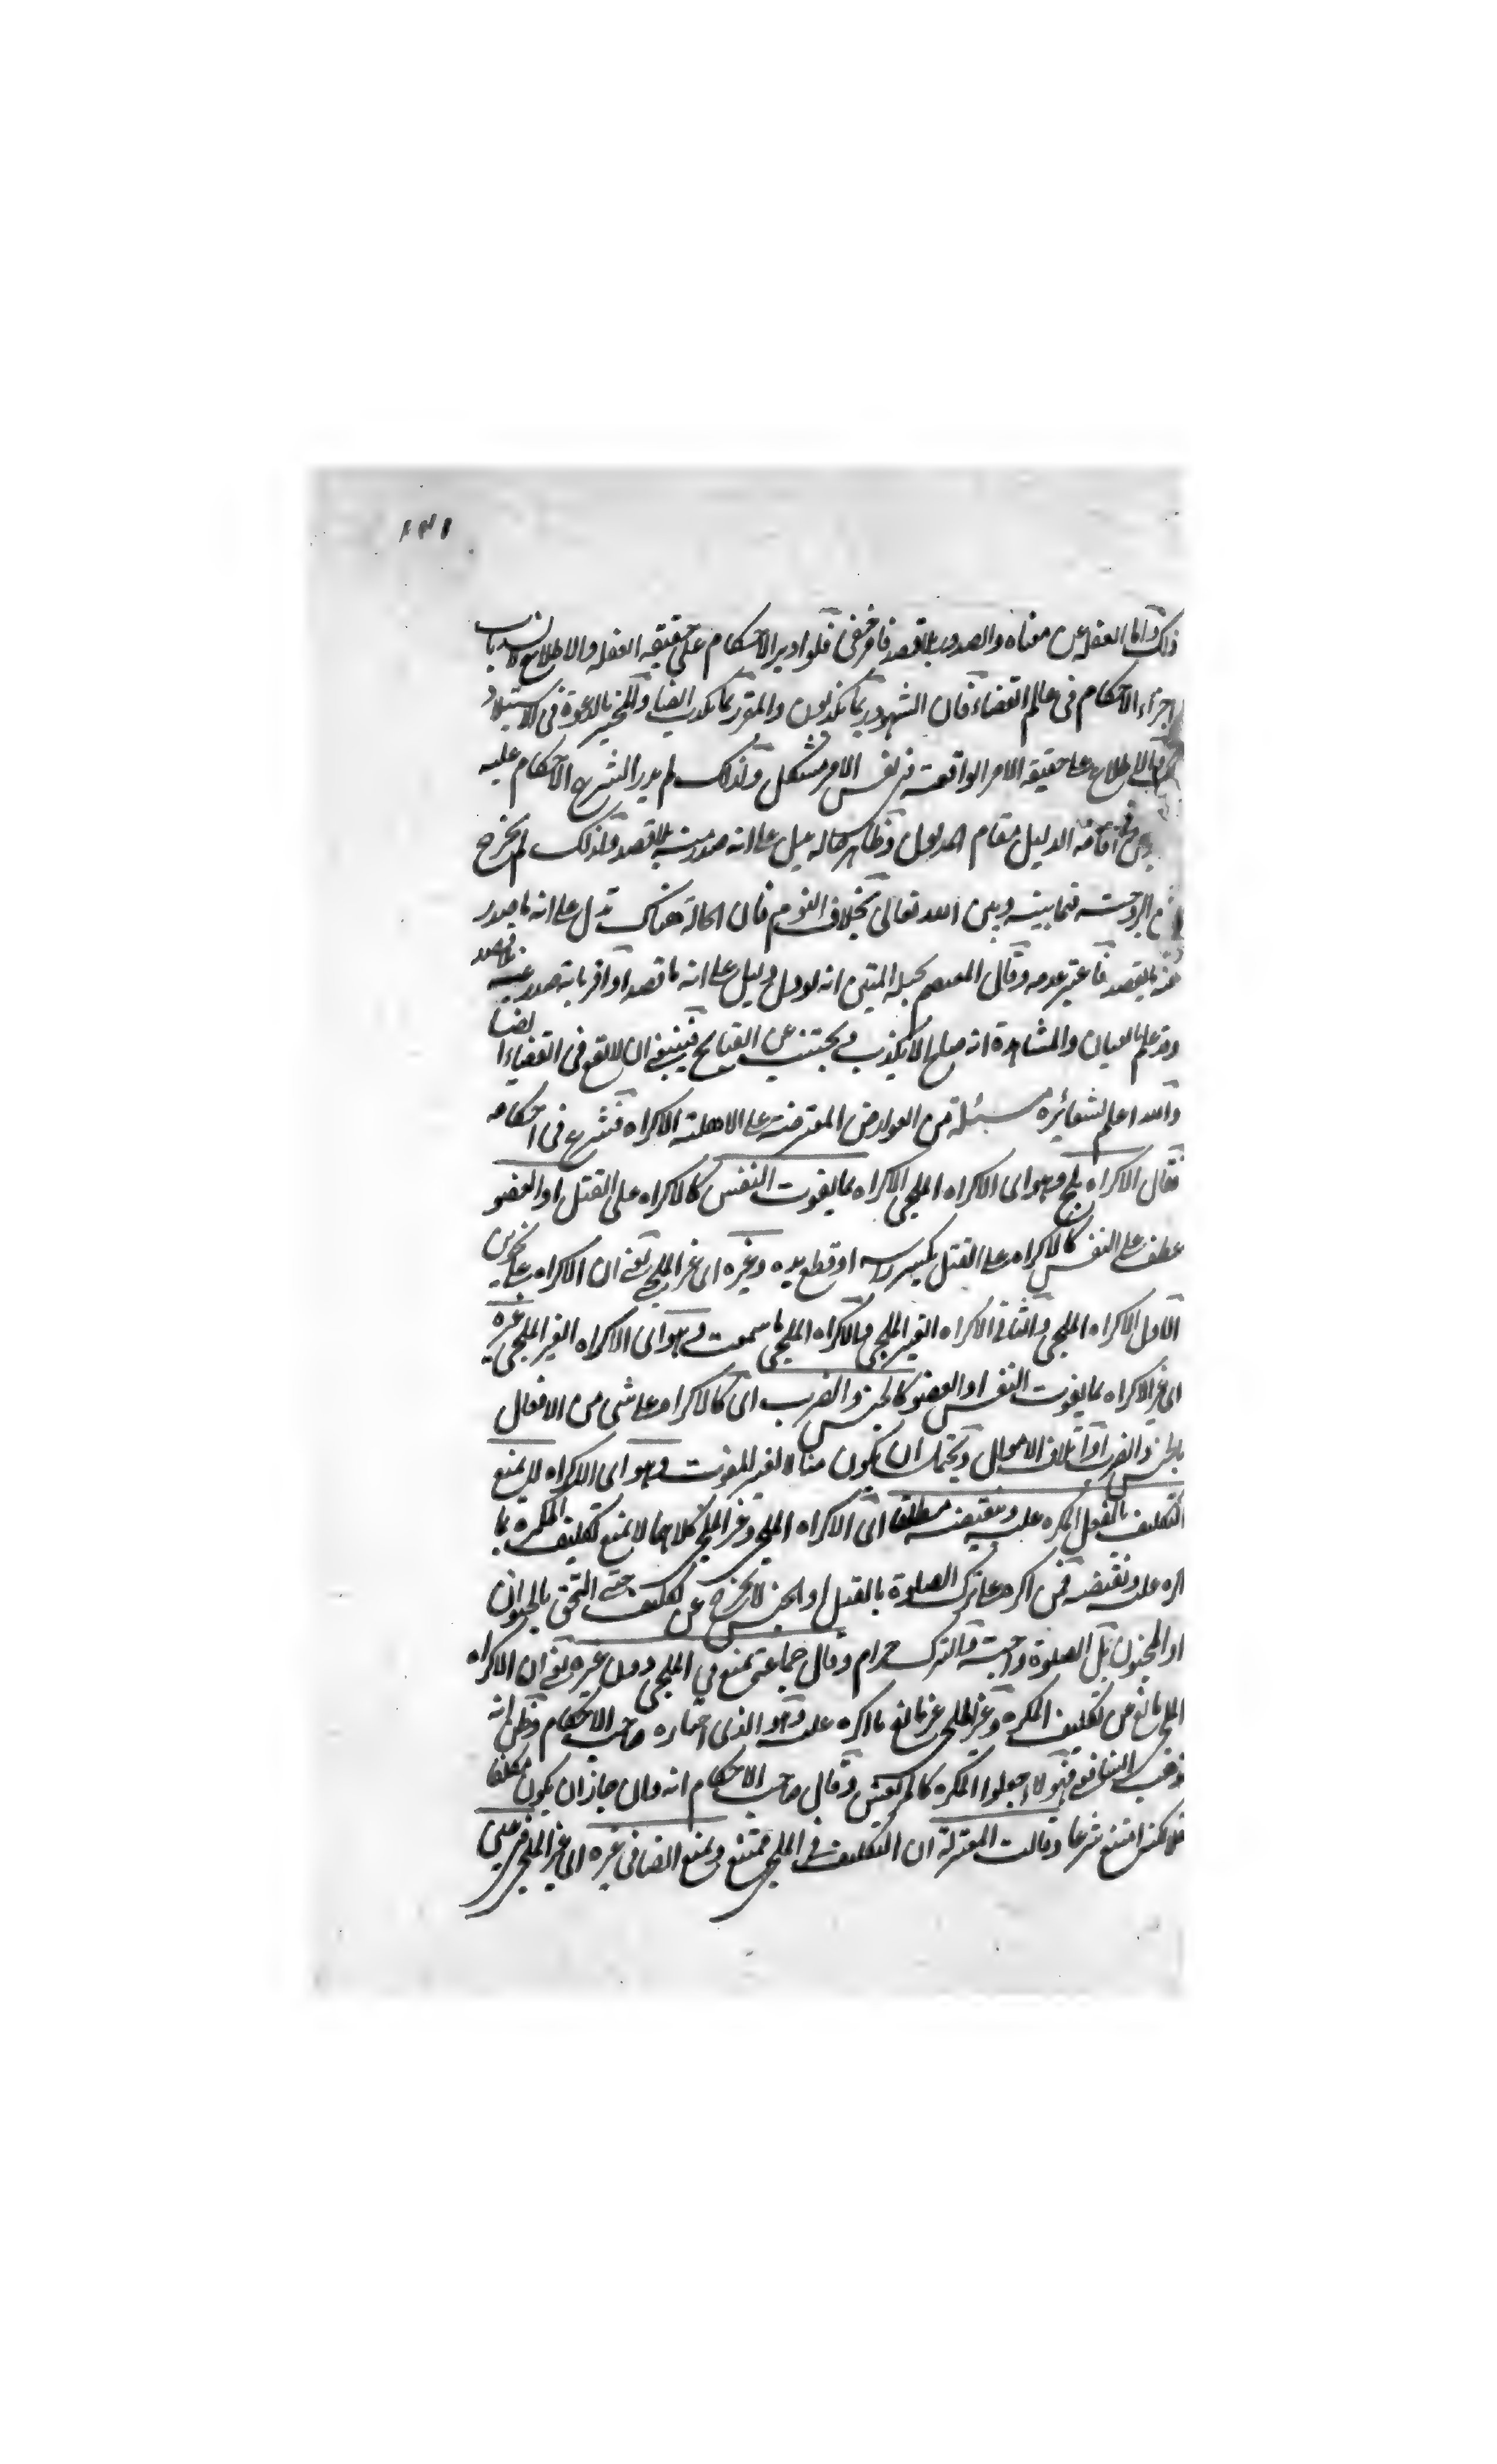 ١٣١
ذلك واما الغفلة عن معناه والصدور بلا قصد فامر خفى فلو ادير الاحكام على حقيقة الغفلة والاطلاع لانسد باب
اجراء الاحكام فى عالم القضاء فان الشهود ربما يكذبون والمقر ربما يكذب ايضا والمخبر بالدعوة فى الاستيلاد
وبالاطلاع على حقيقة الامر الواقعة فى نفس الامر مشكل ولذلك لم يدر الشرع الاحكام عليه
اقامة الدليل مقام المدلول وظاهر حاله على انه صدر منه بلا قصد ولذلك لم يخرج
الزوجية فيما بينه وبين الله تعالى بخلاف النوم فان الحالة هناك تدل على انه ما صدر
منه بالقصد فاعتبر عدمه وقال المعصم بحبله المتين انه لو دل دليل على انه ما قصد او اقر بانه صدر عنه بلا قصد
وقد علم بالعيان والمشاهدة انه صلح لا يكذب ويجتنب عن القبايح فينبغى ان لا يقع فى القضاء ايضا
والله اعلم لشعائره مسئلة من العوارض المعترضة على الاهلية الاكراه فنشرع فى احكامه
فقال الاكراه ملجئ وهو اى الاكراه الملجى الاكراه بما يفوت النفس كالاكراه على القتل او العضو
عطف على النفس كالاكراه على القتل بكسر راسه او قطع يده وغيره اى غير الملجى يعنى ان الاكراه على نحوين
الاول الاكراه الملجى والثانى الاكراه الغير الملجى والاكراه الملجى ما سمعت وهو اى الاكراه الغير الملجى غيره
اى غير الاكراه بما يفوت النفس او العضو كالحبس والضرب اى كالاكراه على شى من الافعال
بالحبس والضرب او اتلاف الاموال ويحتمل ان يكون مثالا لغير المفوت وهو اى الاكراه لا يمنع
التكليف بالفعل المكره عليه ونقيضه مطلقا اى الاكراه الملجى وغير الملجى كلاهما لا يمنع تكليف المكره بما
اكره عليه ونقيضه فمن اكره على ترك الصلوة بالقتل او الحبس لا يخرج عن التكليف حتى التحق بالحيوان
او المجنون بل الصلوة واجبة والترك حرام وقال جماعة يمنع فى الملجى دون غيره يعنى ان الاكراه
الملجى مانع من تكليف المكره وغير الملجى غير مانع ما اكره عليه وهو الذى اختاره صاحب الاحكام وظن انه
مذهب الشافعى فهولاء جعلوا المكره كالمرتعش وقال صاحب الاحكام انه وان جاز ان يكون مكلفا
لكن امتنع شرعا وقالت المعتزلة ان التكليف فى الملجى ممتنع ويمنع ايضا فى غيره اى غير الملجى فى عين